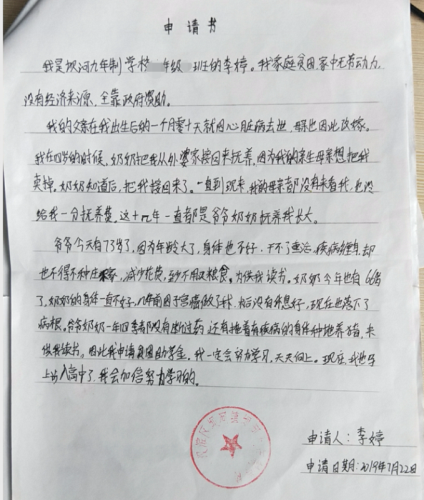 申请书
我是坝河九年制学校 年级 班的李婷。我家庭贫困家中无劳动力,
没有经济来源,全靠政府资助。
我的父亲在我出生后的一个月零十天就因心脏病去世,母也因此改嫁。
我在四岁的时候,奶奶把我从外婆家接回来抚养,因为我的亲生母亲想把我
卖掉,奶奶知道后,把我接回来了。一直到现在,我的母亲都没有来看我,也没
给我一分抚养费。这十几年一直都是爷爷奶奶抚养我长大。
爷爷今天有73岁了,因为年龄大了,身体也不好,干不了重活,疾病缠身,却
也不得不种庄 ,减少花费,秒不用买粮食。为供我读书。奶奶今年也有66岁
了,奶奶的身体一直不好,几年前因子宫癌做了手术,术后没有休息好,现在也落下了
病根。爷爷奶奶一年四季都没有断过药 还有拖着有疾病的身体种地养猪,来
供我读书。因此我申请贫困助学金。我一定会努力学习,天天向上。现在,我也马
上步入高中了,我会加倍努力学习的。
申请人:李婷
申请日期:2019年7月22日